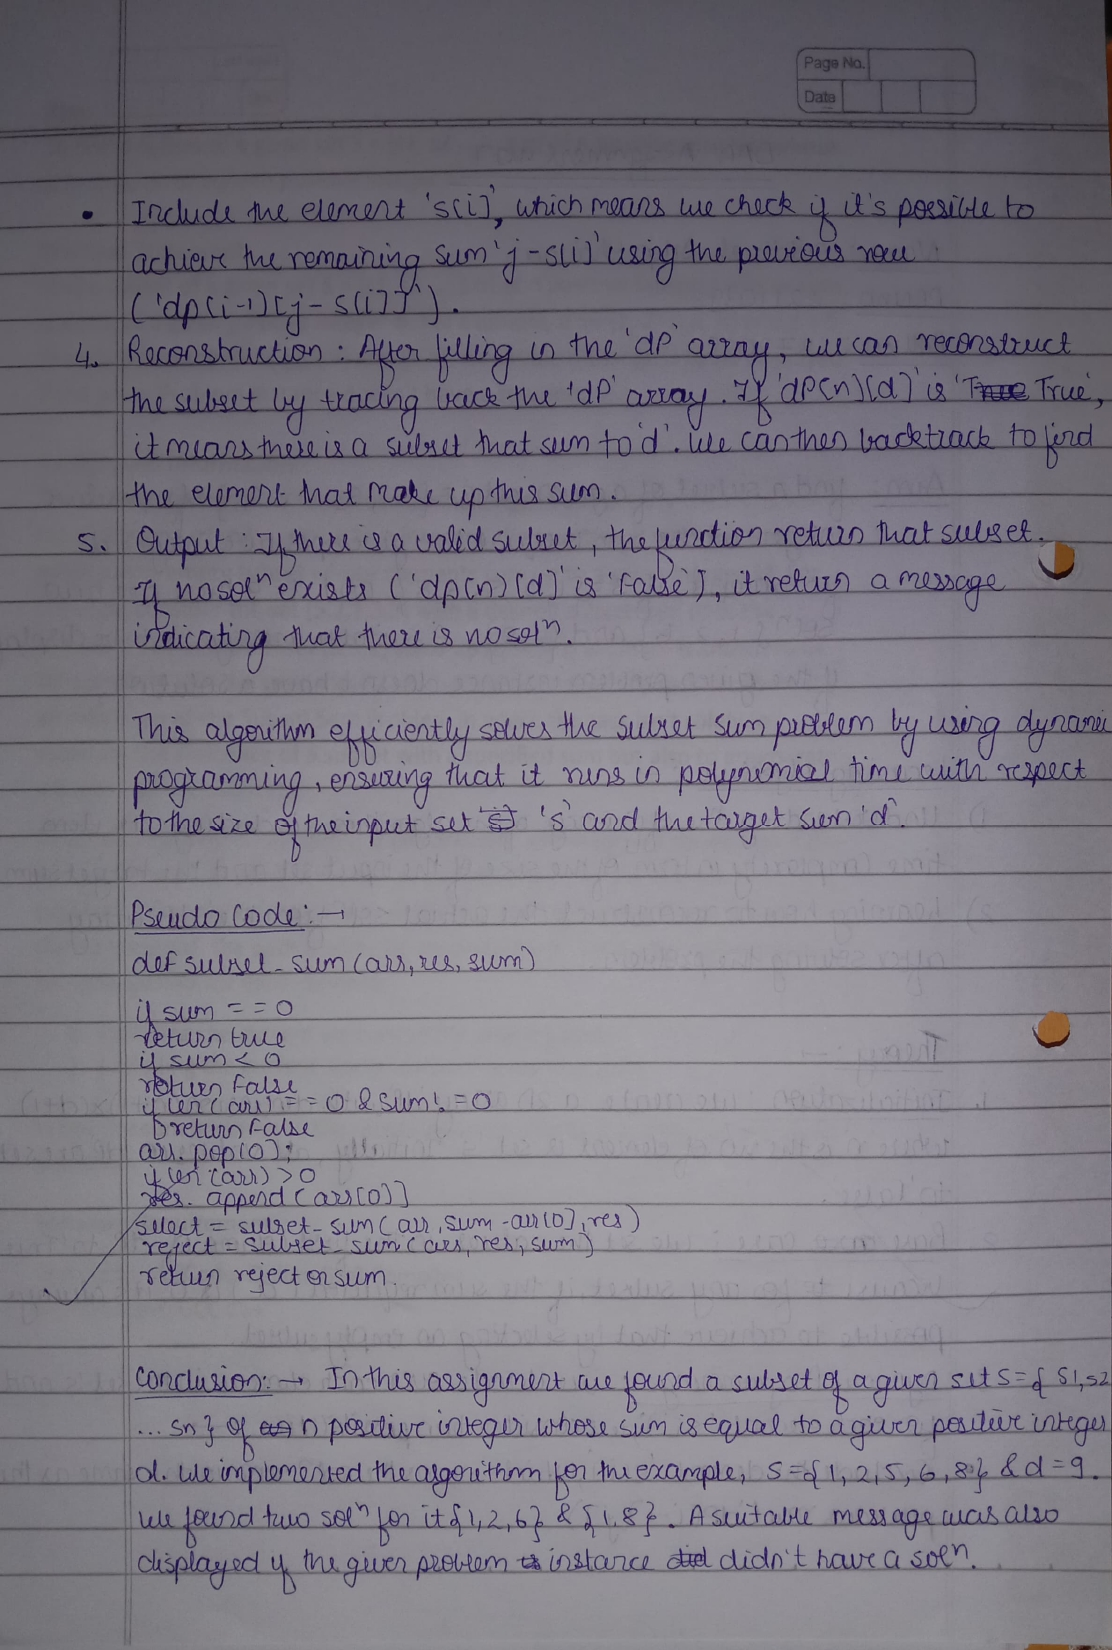 Page No.
Date
• Include the element 's[i]', which means we check if it's possible to
achieve the remaining sum 'j-s[i]' using the previous row
('dp[i-1][j-s[i]]').
4. Reconstruction : After filling in the 'dp' array, we can reconstruct
the subset by tracing back the 'dp' array. If 'dp[n][d]' is 'True',
it means there is a subset that sum to 'd'. We can then backtrack to find
the element that make up this sum.
5. Output : If there is a valid subset, the function return that subset.
If no solⁿ exists ('dp[n][d]' is 'False'), it return a message
indicating that there is no solⁿ.
This algorithm efficiently solves the subset sum problem by using dynamic
programming, ensuring that it runs in polynomial time with respect
to the size of the input set 's' and the target sum 'd'.
Pseudo Code :→
def subset_sum (arr, res, sum)
if sum == 0
return true
if sum < 0
return False
if len(arr) == 0 & sum! = 0
return False
arr. pop(0);
if len(arr) > 0
res. append (arr[0])
select = subset_sum (arr, sum -arr[0], res)
reject = subset_sum (arr, res, sum)
return reject or sum.
Conclusion: → In this assignment we found a subset of a given set S = { S1, S2
... Sn } of n positive integer whose sum is equal to a given positive integer
d. We implemented the algorithm for the example, S = {1, 2, 5, 6, 8} & d = 9.
We found two solⁿ for it {1, 2, 6} & {1, 8}. A suitable message was also
displayed if the given problem instance didn't have a solⁿ.